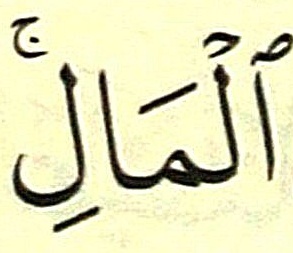 ٱلۡمَالِۚ